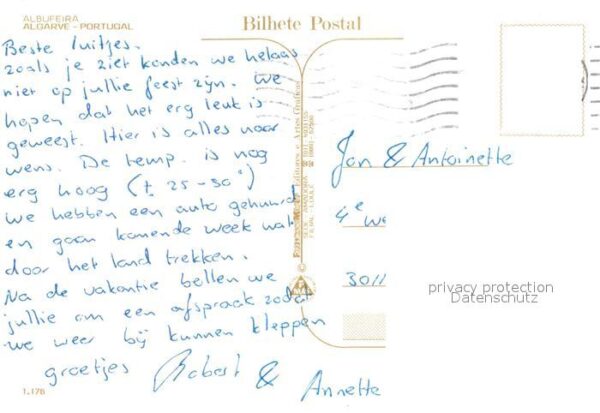 ALBUFEIRA
ALGARVE - PORTUGAL
Bilhete Postal
Beste Luitjes.
zoals je ziet konden we helaas
niet op jullie feest zijn. We
hopen dat het erg leuk is
geweest. Hier is alles naar
wens. De temp. is nog
erg hoog (± 25-30°)
we hebben een auto gehuurd
en gaan komende week wat
door het land trekken.
Na de vakantie bellen we
jullie om een afspraak zodat
we weer bij kunnen kleppen
groetjes Robert & Annette
Jan & Antoinette
4e We
3011
privacy protection
Datenschutz
1.176